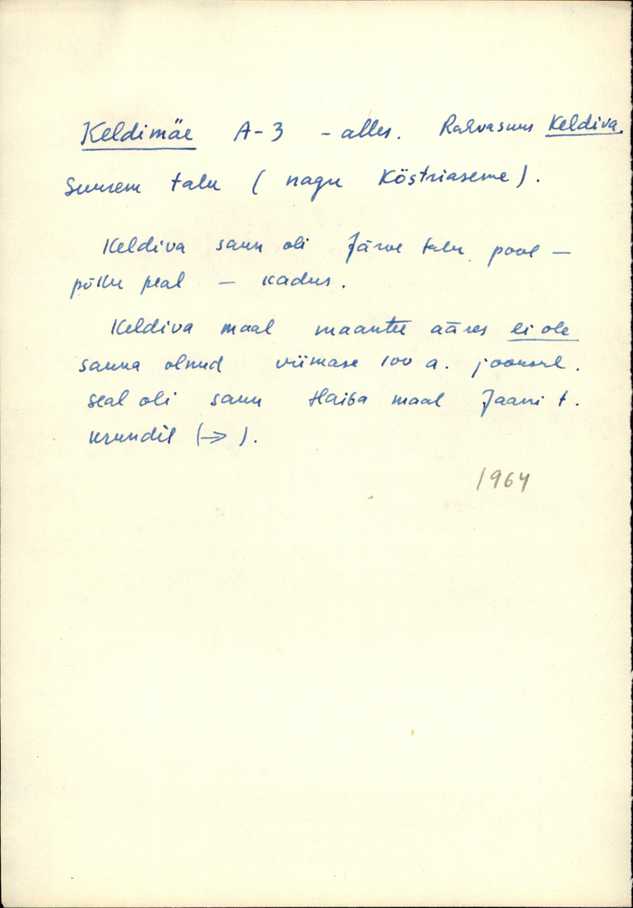 Keldimäe A-3 - alles. Rahvasuus Keldiva.
Suurem talu (nagu Köstriaseme).
Keldiva saun oli Järve talu pool -
põllu peal - kadus.
Keldiva maal maantee ääres ei ole
sauna olnud viimase 100 a. jooksul.
Seal oli saun Haiba maal Jaani t.
krundil (→).
1964